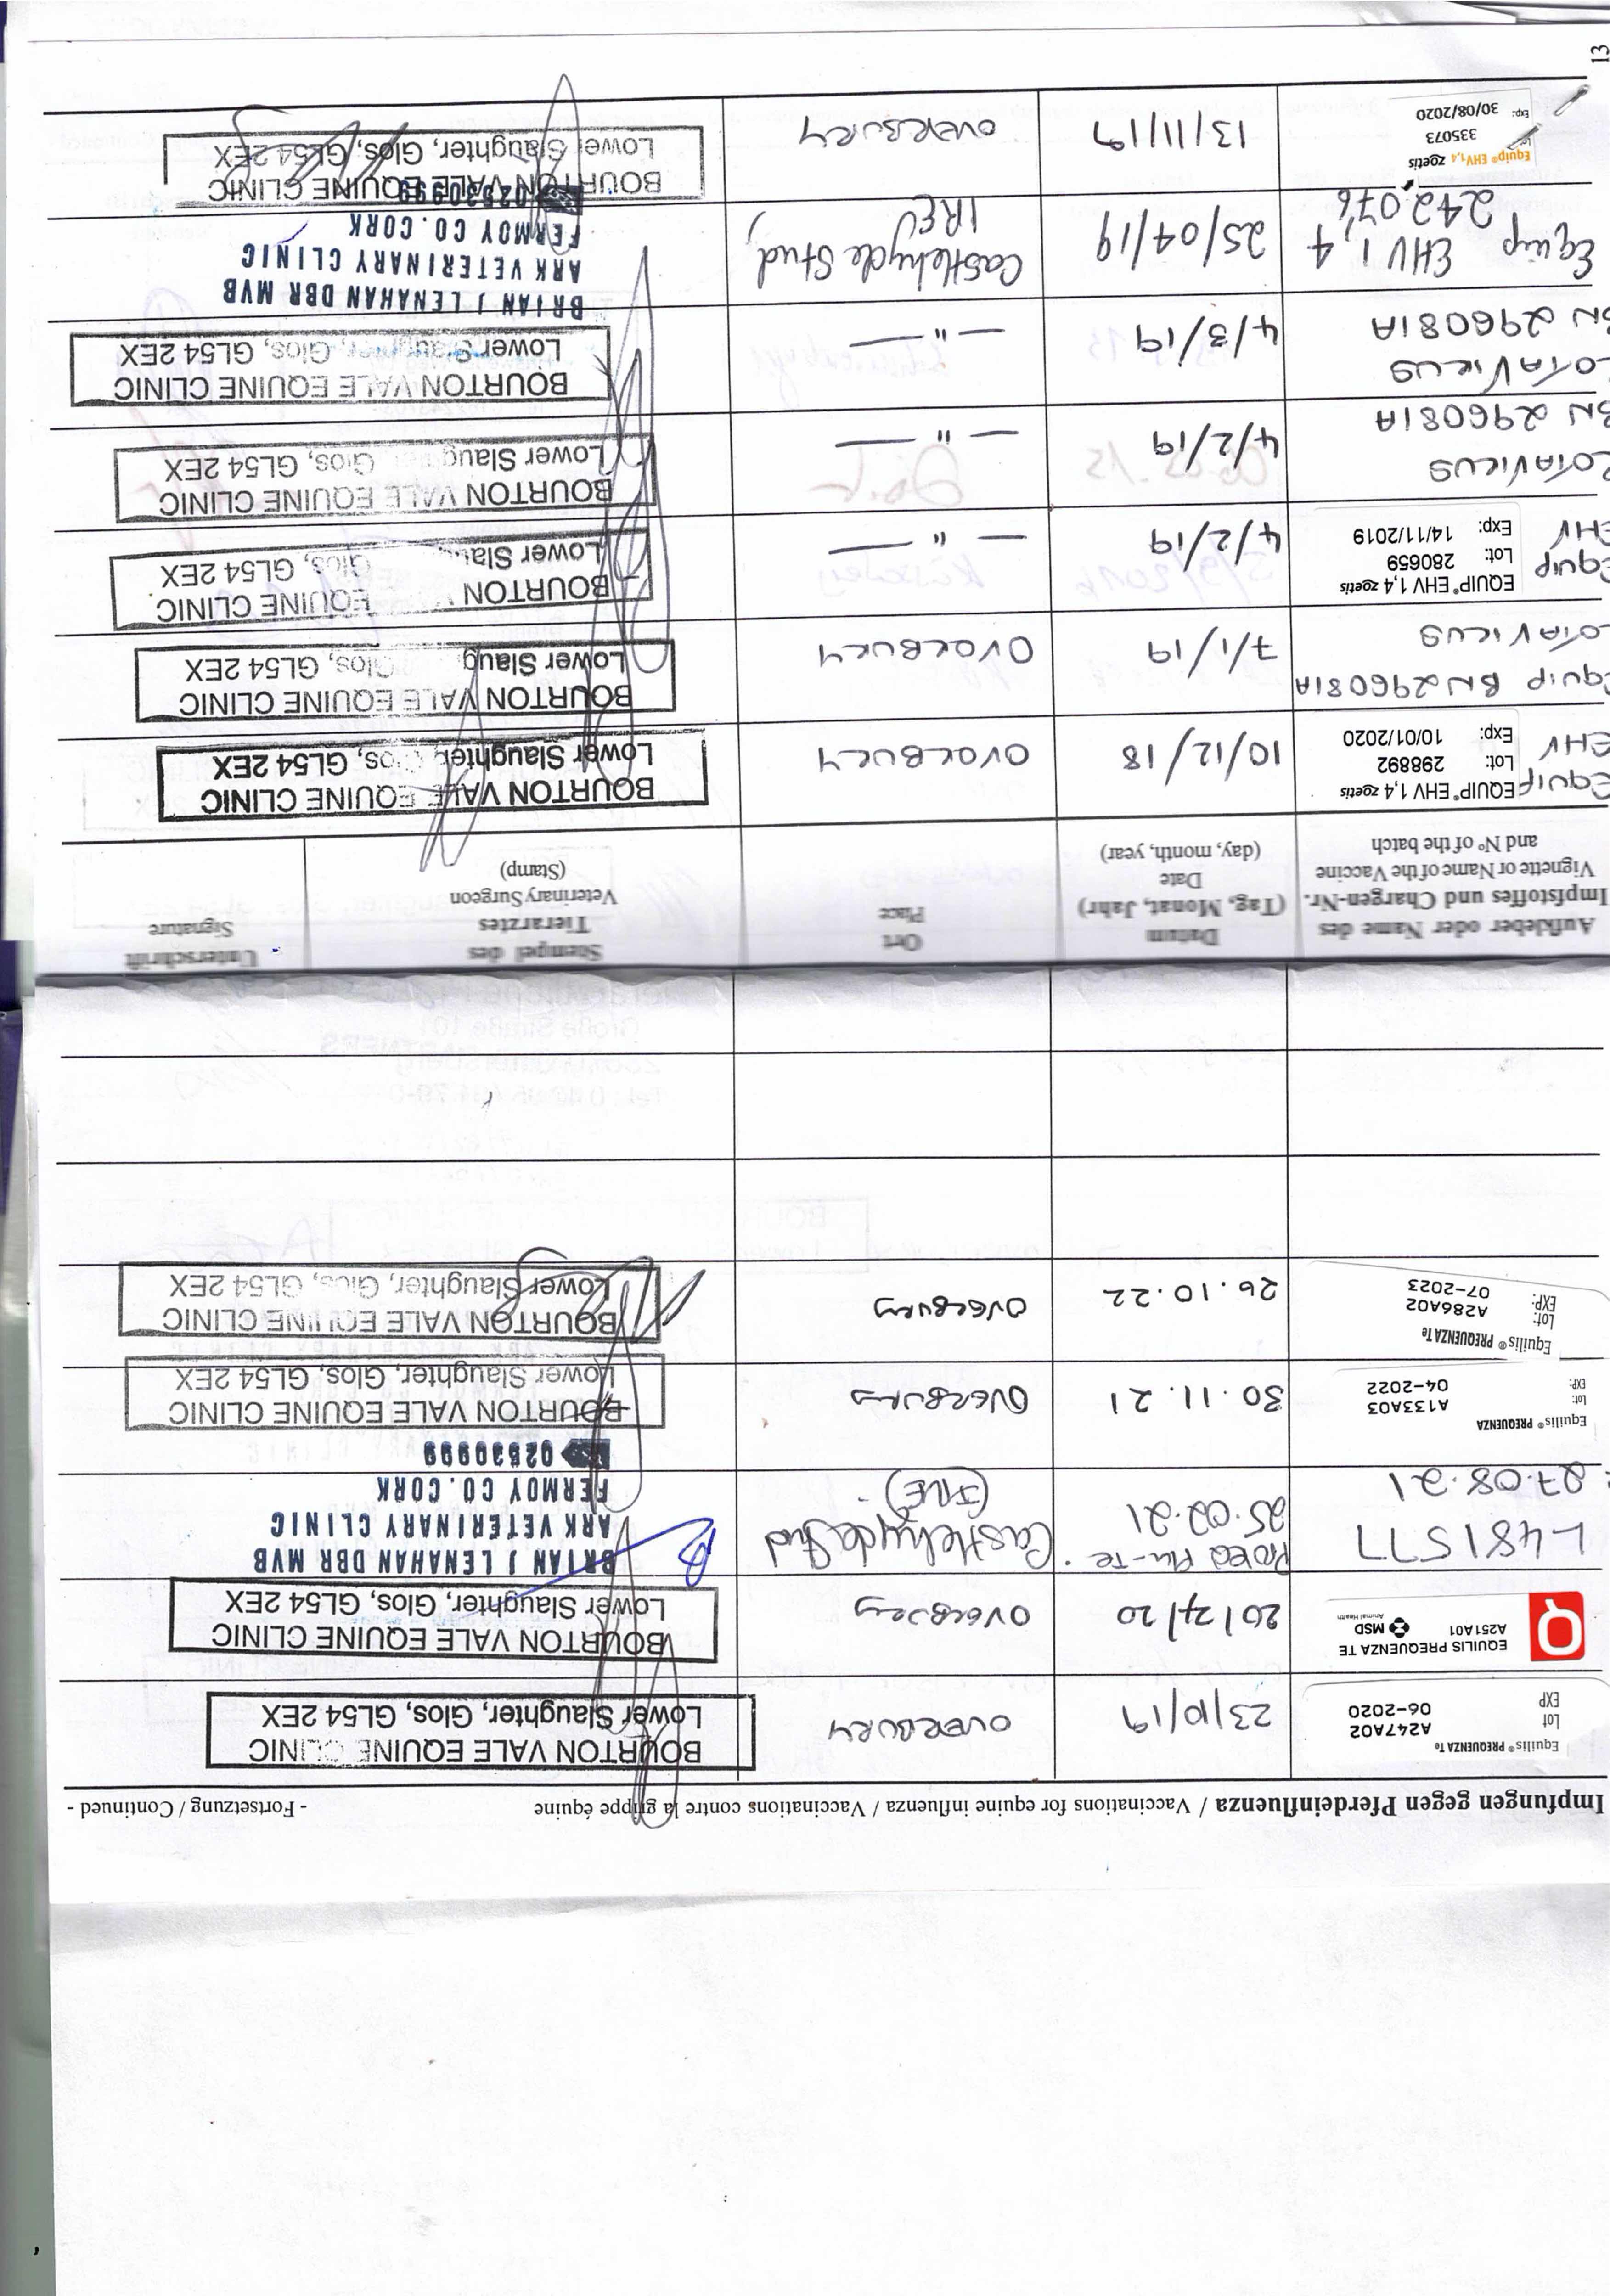 Impfungen gegen Pferdeinfluenza / Vaccinations for equine influenza / Vaccinations contre la grippe équine - Fortsetzung / Continued -
Equilis® PREQUENZA Te
Lot A247A02
EXP 06-2020
23/10/19
OVERBURY
BOURTON VALE EQUINE CLINIC
Lower Slaughter, Glos, GL54 2EX
EQUILIS PREQUENZA TE
A251A01 MSD
Animal Health
20/7/20
OVERBURY
BOURTON VALE EQUINE CLINIC
Lower Slaughter, Glos, GL54 2EX
L481577
27.08.21
ProteQ Flu-Te.
25.02.21
Castlehyde Stud
(IRE)
BRIAN J LENAHAN DBR MVB
ARK VETERINARY CLINIC
FERMOY CO. CORK
02530999
Equilis® PREQUENZA
Lot: A133A03
EXP: 04-2022
30.11.21
OVERBURY
BOURTON VALE EQUINE CLINIC
Lower Slaughter, Glos, GL54 2EX
Equilis® PREQUENZA Te
Lot: A286A02
EXP: 07-2023
26.10.22
OVERBURY
BOURTON VALE EQUINE CLINIC
Lower Slaughter, Glos, GL54 2EX
Aufkleber oder Name des
Impfstoffes und Chargen-Nr.
Vignette or Name of the Vaccine
and Nº of the batch
Datum
(Tag, Monat, Jahr)
Date
(day, month, year)
Ort
Place
Stempel des
Tierarztes
Veterinary Surgeon
(Stamp)
Unterschrift
Signature
EQUIP
EHV
EQUIP® EHV 1,4 zoetis
Lot: 298892
Exp: 10/01/2020
10/12/18
OVERBURY
BOURTON VALE EQUINE CLINIC
Lower Slaughter, Glos, GL54 2EX
EQUIP BN 296081A
ROTAVIRUS
7/1/19
OVERBURY
BOURTON VALE EQUINE CLINIC
Lower Slaug Glos, GL54 2EX
EQUIP
EHV
EQUIP® EHV 1,4 zoetis
Lot: 280659
Exp: 14/11/2019
4/2/19
— " —
BOURTON EQUINE CLINIC
Lower Slau Glos, GL54 2EX
ROTAVIRUS
BN 296081A
4/2/19
— " —
BOURTON VALE EQUINE CLINIC
Lower Slaug Glos, GL54 2EX
ROTAVIRUS
BN 296081A
4/3/19
— " —
BOURTON VALE EQUINE CLINIC
Lower Slaughter, Glos, GL54 2EX
Equip EHV 1,4
242076
25/04/19
Castlehyde Stud,
IRE
BRIAN J LENAHAN DBR MVB
ARK VETERINARY CLINIC
FERMOY CO. CORK
02530999
Equip® EHV 1,4 zoetis
Lot: 335073
Exp: 30/08/2020
13/11/19
OVERBURY
BOURTON VALE EQUINE CLINIC
Lower Slaughter, Glos, GL54 2EX
13